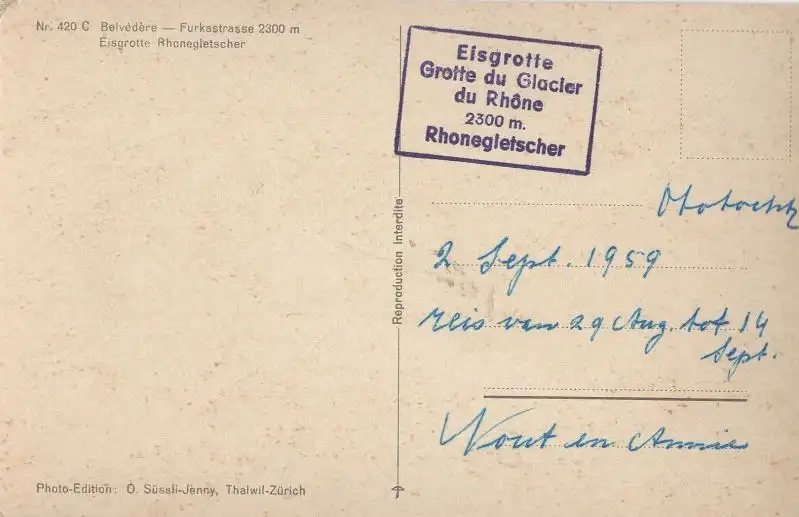 Nr. 420 C Belvédère — Furkastrasse 2300 m
Eisgrotte Rhonegletscher
Eisgrotte
Grotte du Glacier
du Rhône
2300 m.
Rhonegletscher
Reproduction Interdite
2 Sept. 1959
reis van 29 Aug. tot 14
Sept.
Nout en Annie
Photo-Edition: O. Süssli-Jenny, Thalwil-Zürich